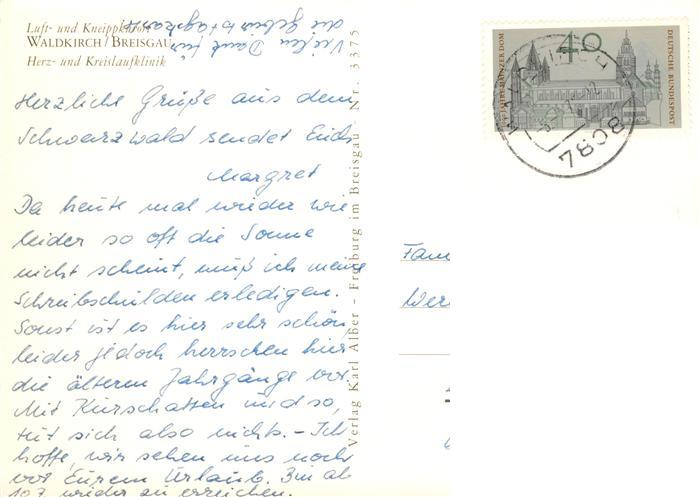 Luft- und Kneippkurort
WALDKIRCH / BREISGAU
Herz- und Kreislaufklinik
Vielen Dank für
die Geburtstagskarte
Herzliche Grüße aus dem
Schwarzwald sendet Euch
Margret
Da heute mal wieder wie
leider so oft die Sonne
nicht scheint, muß ich meine
Schreibschulden erledigen.
Sonst ist es hier sehr schön,
leider jedoch herrschen hier
die älteren Jahrgänge vor.
Mit Kurschatten und so,
tut sich also nichts. – Ich
hoffe, wir sehen uns noch
vor Eurem Urlaub. Bin ab
10.7. wieder zu erreichen.
Verlag Karl Alber - Freiburg im Breisgau Nr. 3375
40
JAHRE MAINZER DOM
DEUTSCHE BUNDESPOST
7808
Fam
Wer